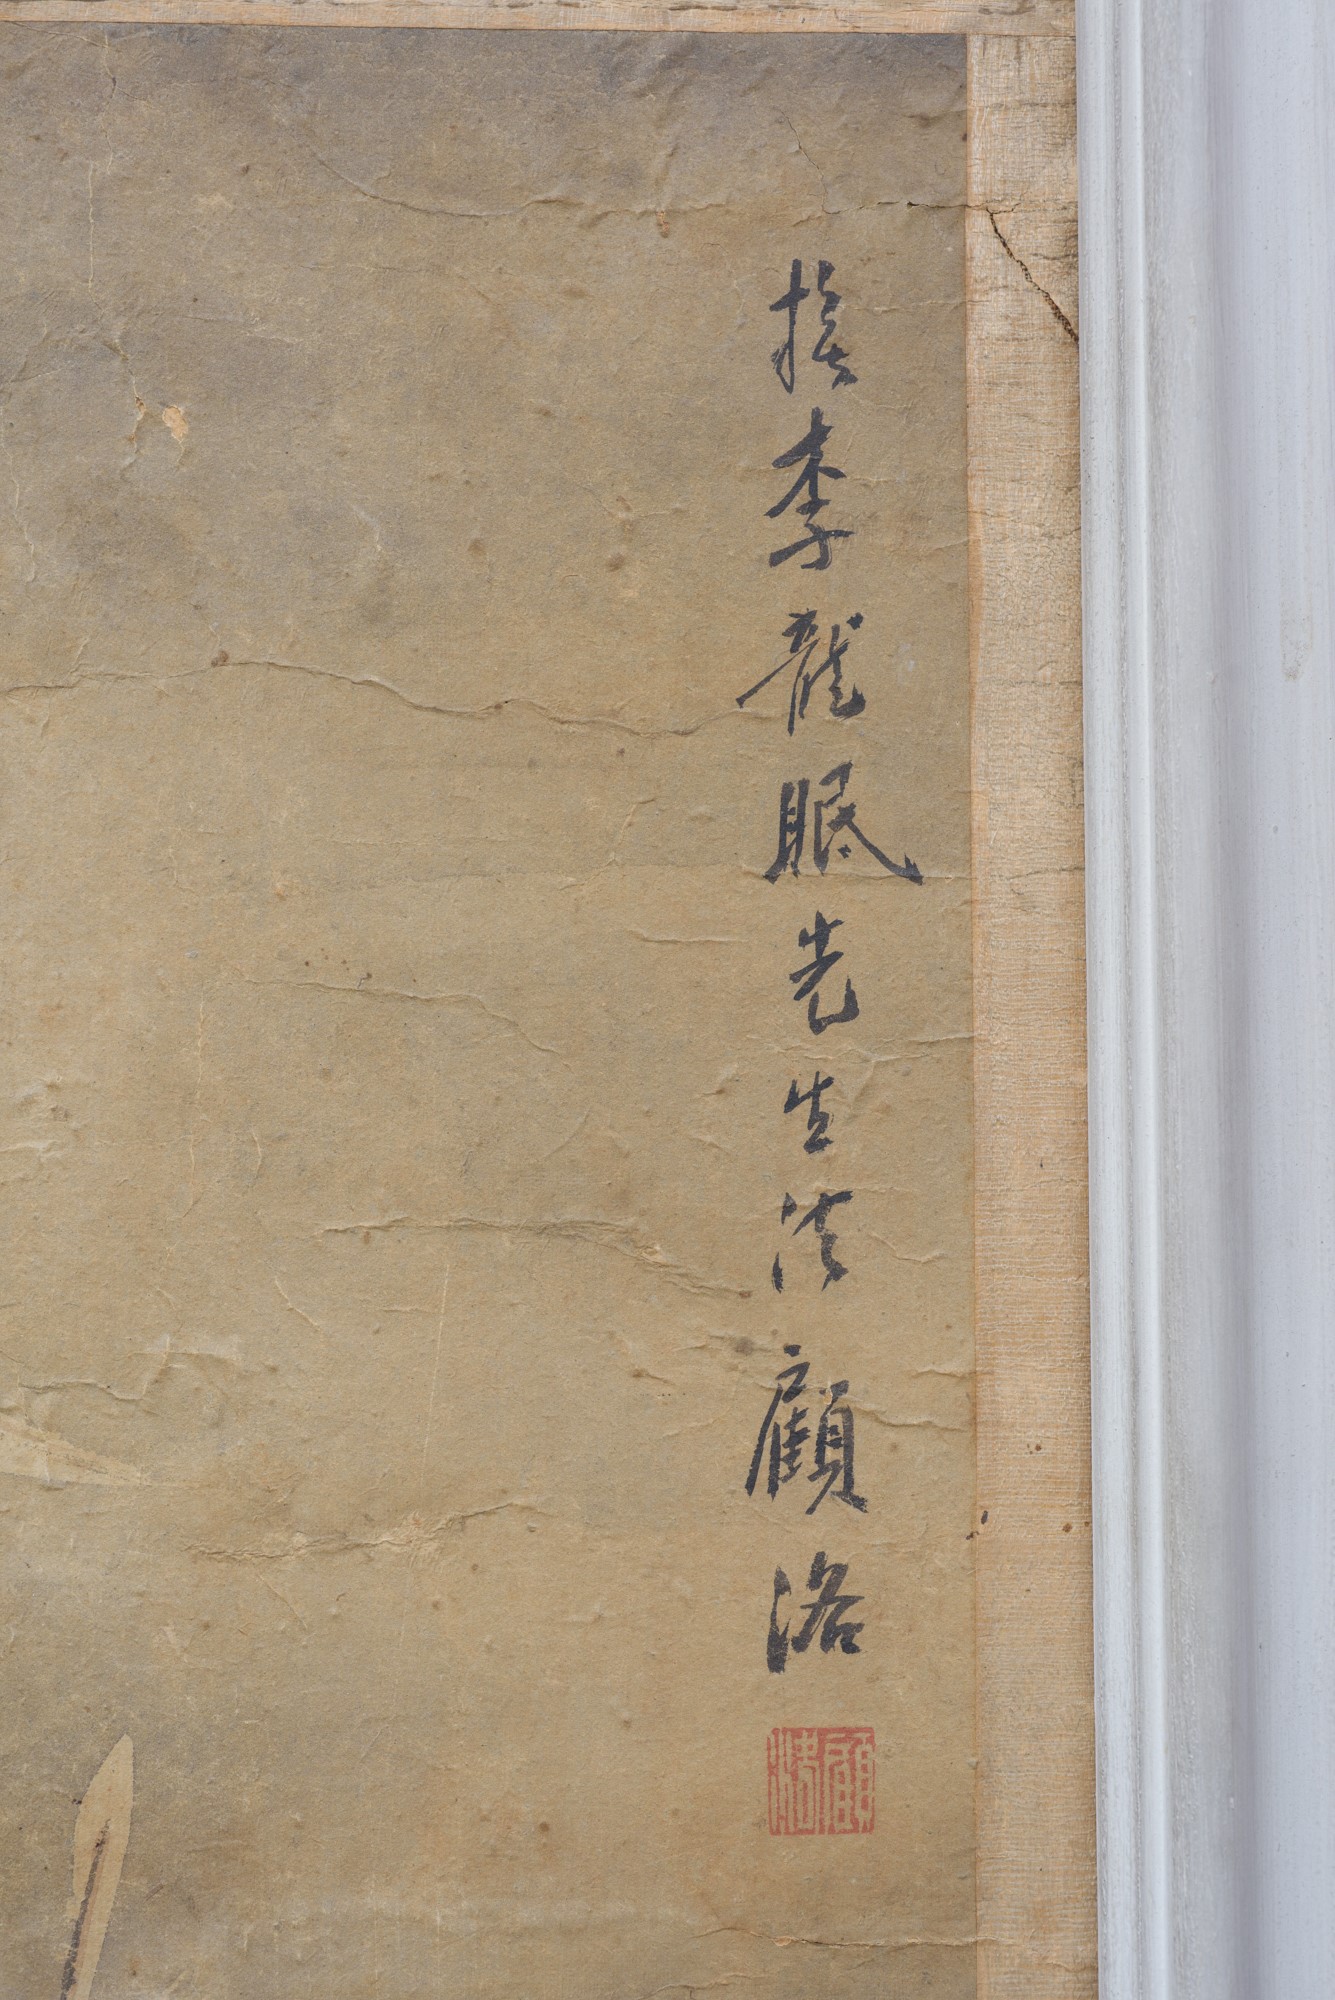 拟李龍眠先生法顧洛
顧洛